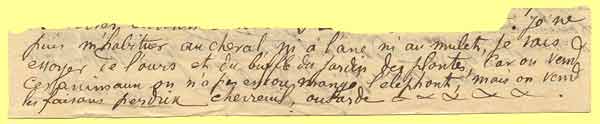 . Je ne
puis m'habituer au cheval, ni à l'ane ni au mulet, je vais
essayer de l'ours et du buffle du Jardin des plantes, car on vend
ces animaux on n'a pas encore mangé l'elephant, mais on vend
les faisans perdrix chevreuil, outarde &c &c &c &c .